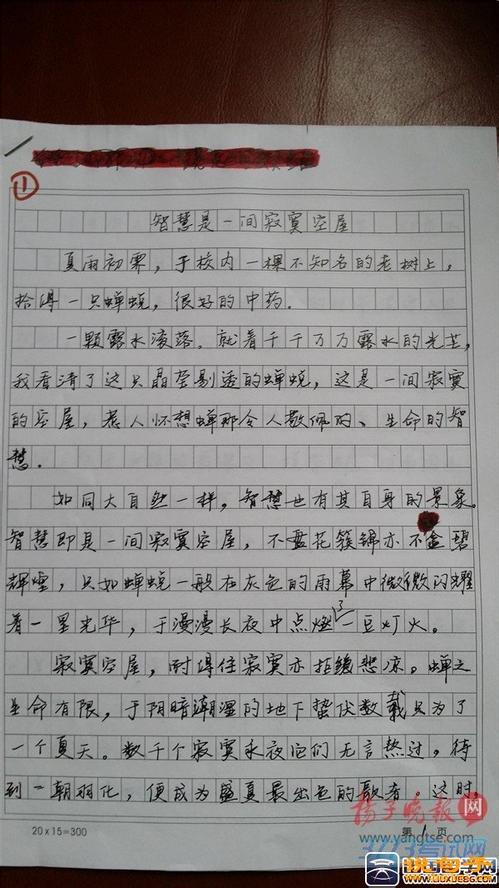 ①
智慧是一间寂寞空屋
夏雨初霁，于校内一棵不知名的老树上，
拾得一只蝉蜕，很好的中药。
一颗露水滚落，就着千千万万露水的光芒，
我看清了这只晶莹剔透的蝉蜕，这是一间寂寞
的空屋，惹人怀想蝉那令人敬佩的、生命的智
慧.
如同大自然一样，智慧也有其自身的景象。
智慧即是一间寂寞空屋，不显花簇锦亦不金碧
辉煌，只如蝉蜕一般在灰色的雨幕中微微闪耀
着一星光华，于漫漫长夜中点燃了一豆灯火。
寂寞空屋，耐得住寂寞亦拒绝悲凉。蝉之
生命有限，于阴暗潮湿的地下蛰伏数载只为了
一个夏天。数千个寂寞永夜它们无言熬过，待
到一朝羽化，便成为盛夏最出色的歌者，这时
20×15=300
第 1 页
扬子晚报网
www.yangtse.com